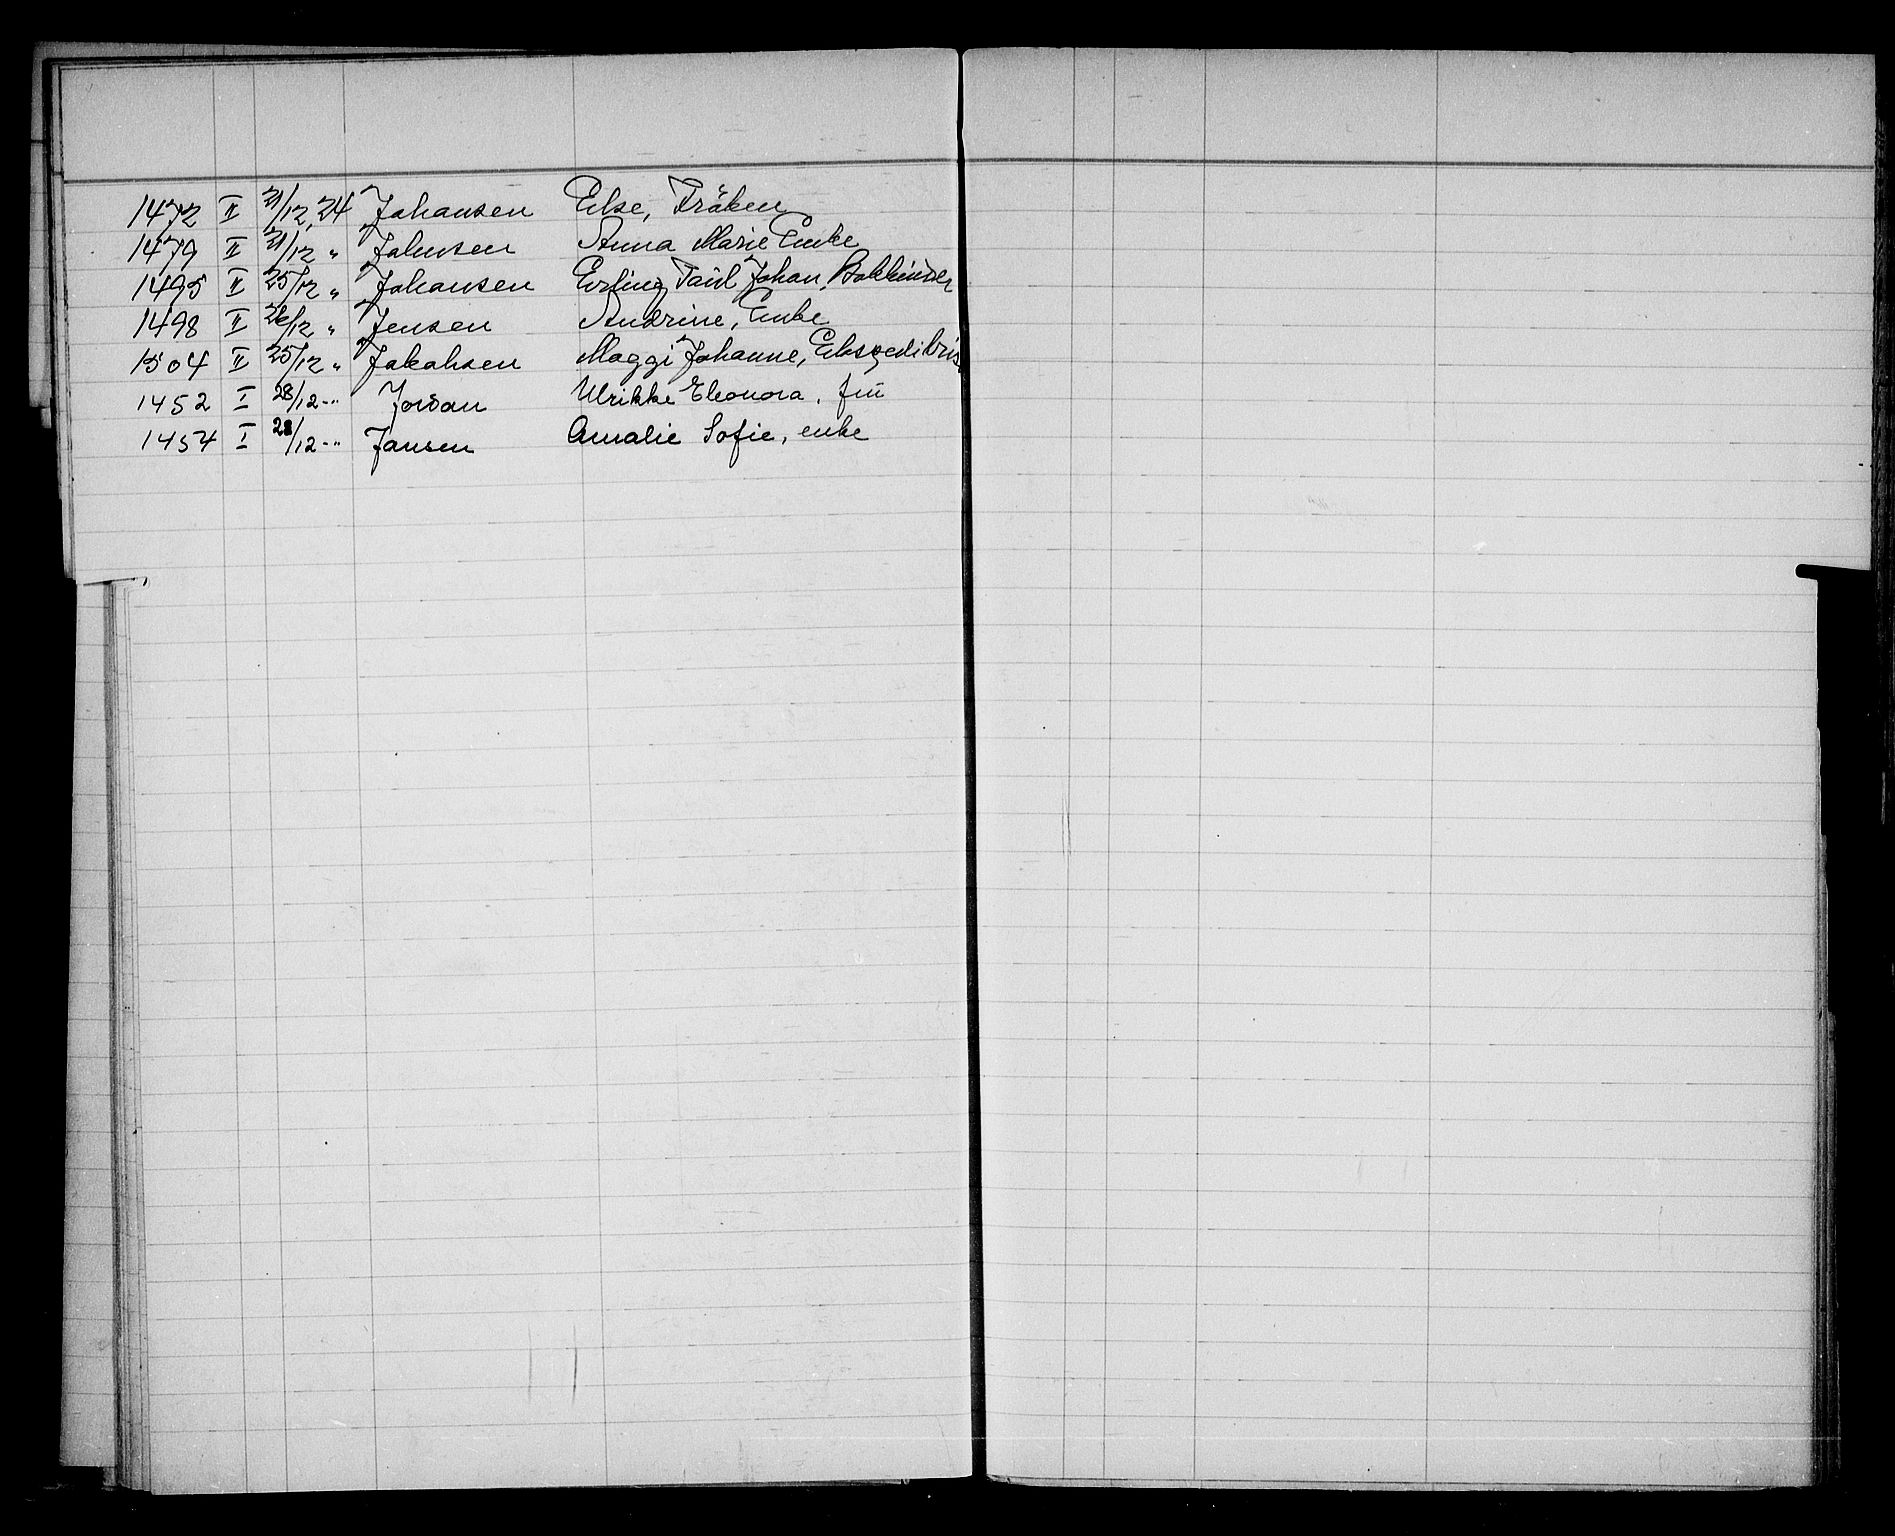 1472 II 21/12, 24 Johansen Else, Fröken
1479 II 21/12 " Johnsen Anna Marie Enke
1495 II 25/12 " Johansen Erling Paul Johan, Bokbinder
1498 II 26/12 " Jensen Andrine, Enke
1504 II 25/12 " Jakobsen Maggi Johanne, Ekspeditris
1452 I 28/12 -" Jordan Ulrikke Eleonora, fru
1454 I 28/12 -" Jansen Amalie Sofie, enke